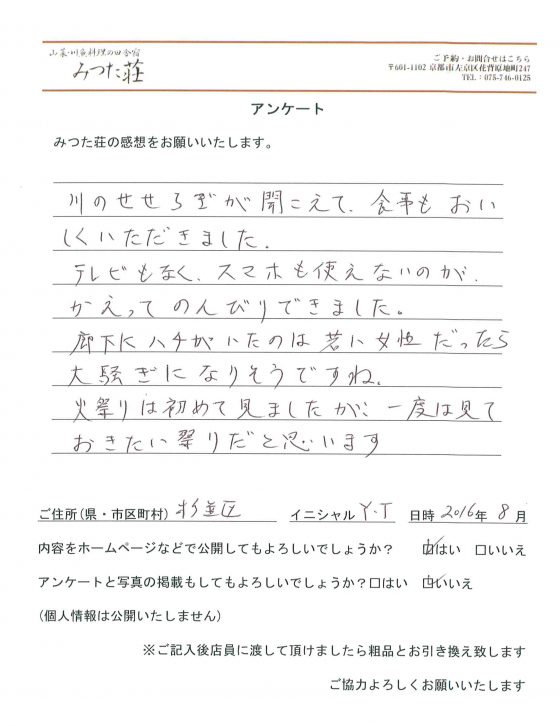 山菜・川魚料理の田舎宿
みつた荘
ご予約・お問合せはこちら
〒601-1102 京都市左京区花背原地町247
TEL：075-746-0125
アンケート
みつた荘の感想をお願いいたします。
川のせせらぎが聞こえて、食事もおい
しくいただきました。
テレビもなく、スマホも使えないのが、
かえってのんびりできました。
廊下にハチがいたのは若い女性だったら
大騒ぎになりそうですね。
火祭りは初めて見ましたが、一度は見て
おきたい祭りだと思います
ご住所(県・市区町村) 杉並区 イニシャル Y・T 日時 2016年 8月
内容をホームページなどで公開してもよろしいでしょうか？ ☑はい □いいえ
アンケートと写真の掲載もしてもよろしいでしょうか？□はい ☑いいえ
(個人情報は公開いたしません)
※ご記入後店員に渡して頂けましたら粗品とお引き換え致します
ご協力よろしくお願いいたします